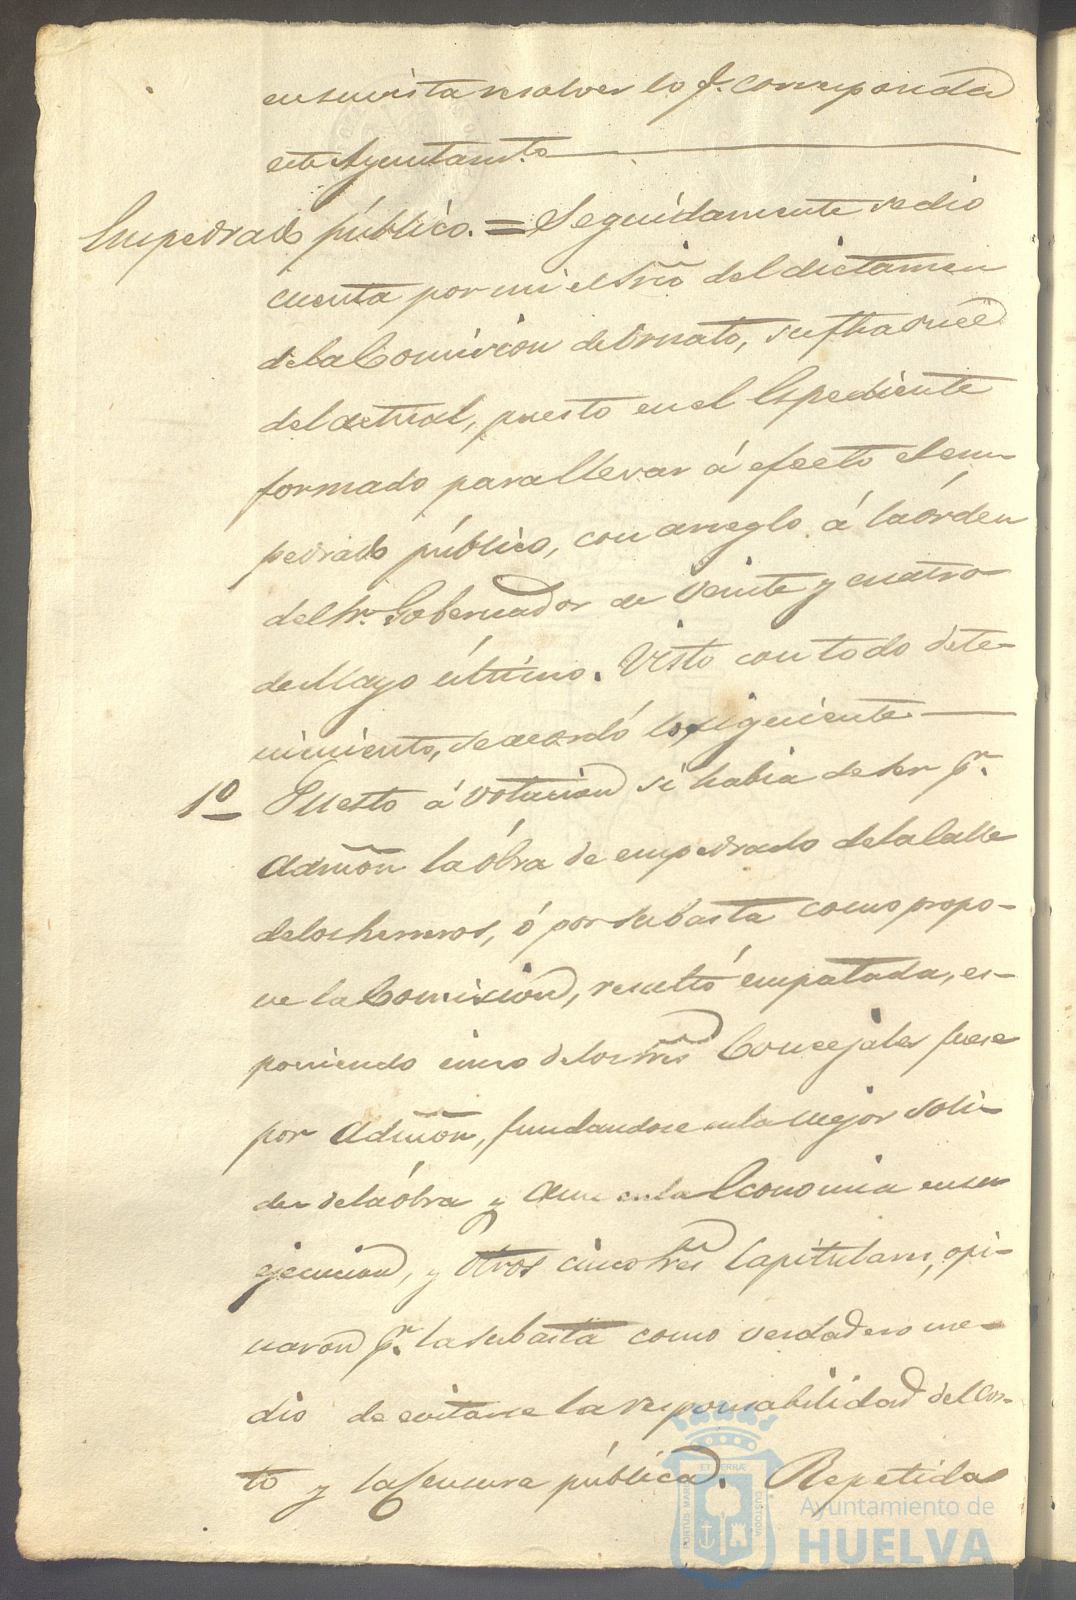 en su vista resolver lo q.e corresponda
este Ayuntam.to
Empedrado público. = Seguidamente se dio
cuenta por mi el Srio del dictamen
de la Comision de Ornato, su fha once
del actual, puesto en el Espediente
formado para llevar á efecto el em-
pedrado público, con arreglo á la órden
del Sr. Gobernador de veinte y cuatro
de Mayo último. Visto con todo dete-
nimiento, se acordó lo siguiente
1º Puesto á votacion si habia de ser p.r
Admón la óbra de empedrado de la Calle
de los herreros, ó por subasta como propo-
ne la Comision, resultó empatada, es-
poniendo cinco de los Sres Concejales fuese
por Admón, fundandose en la mejor soli-
dez de la óbra y aun en la Economia en su
ejecucion, y otros cinco Sres Capitulares, opi-
naron p.r la subasta como verdadero me-
dio de evitarse la responsabilidad del cos-
to y la Censura pública. Repetida
PORTUS MARIS ET TERRAE CUSTODIA
Ayuntamiento de
HUELVA